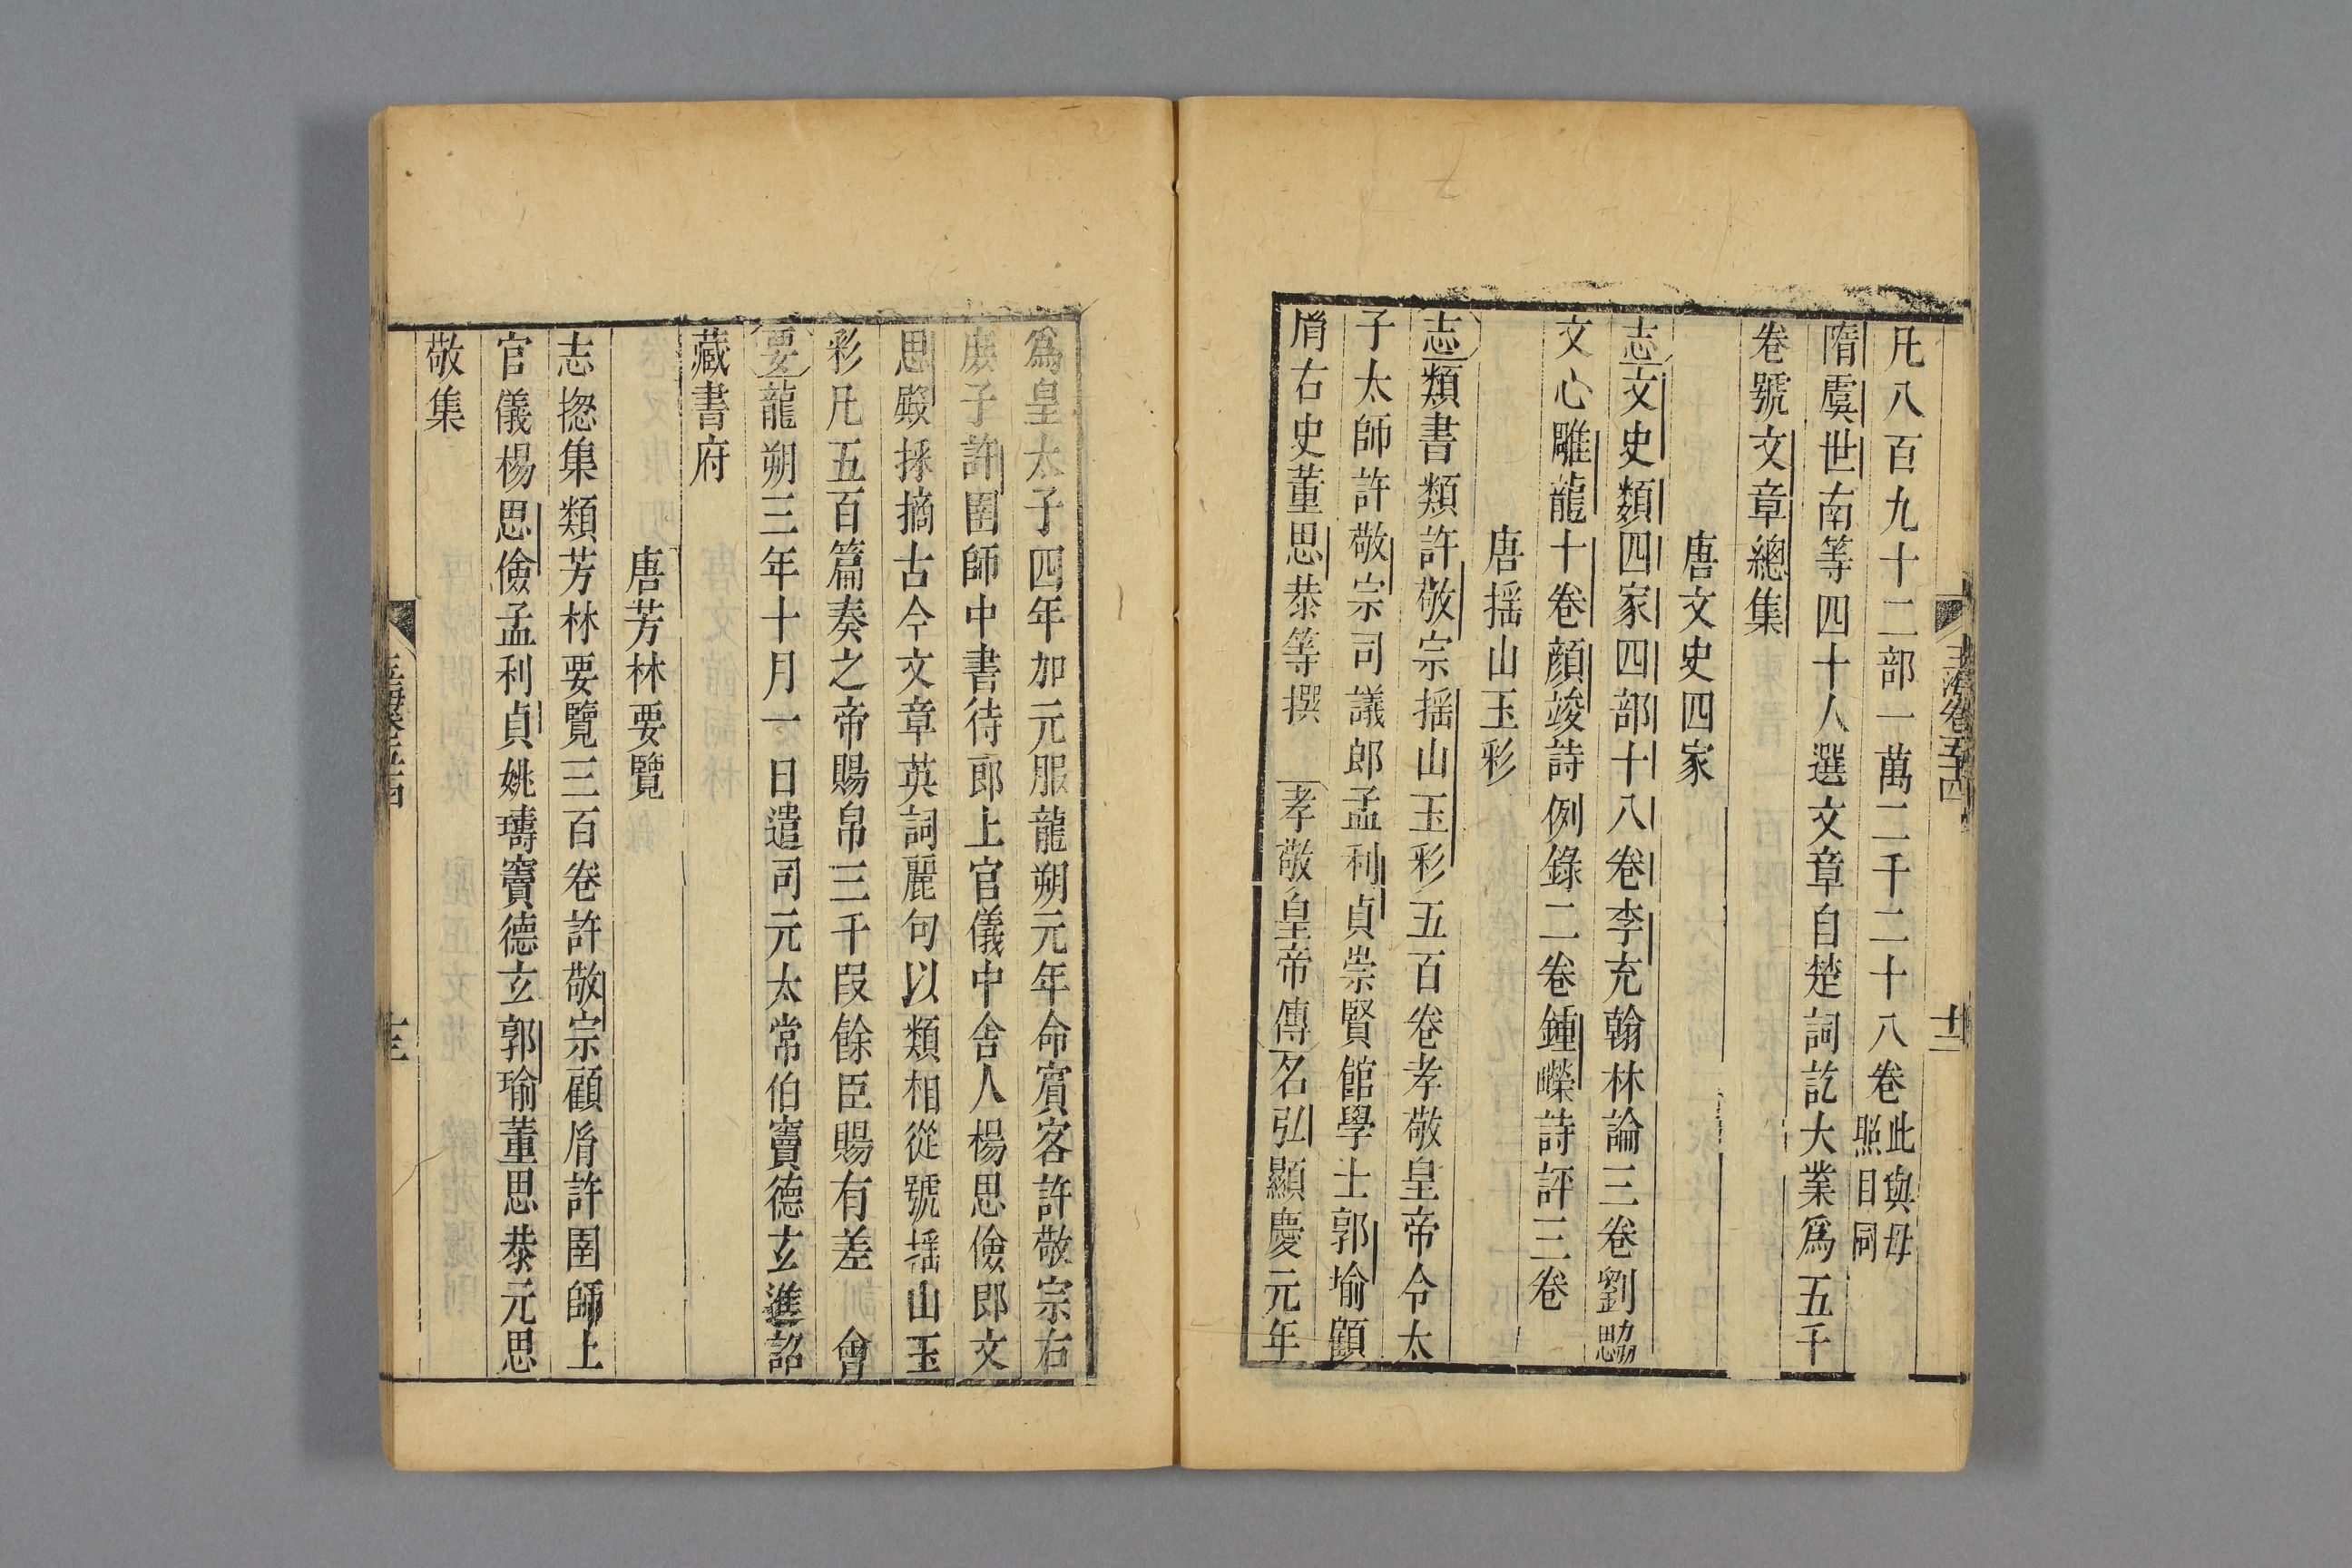 玉海卷五十四
十二
凡八百九十二部一萬二千二十八卷此與毋照目同
隋虞世南等四十人選文章自楚詞訖大業爲五千
卷號文章總集
唐文史四家
志文史類四家四部十八卷李充翰林論三卷劉勰
文心雕龍十卷顔竣詩例錄二卷鍾嶸詩評三卷
唐揺山玉彩
志類書類許敬宗揺山玉彩五百卷孝敬皇帝令太
子太師許敬宗司議郎孟利貞崇賢館學士郭瑜顧
胤右史董思恭等撰 孝敬皇帝傳名弘顯慶元年
爲皇太子四年加元服龍朔元年命賓客許敬宗右
庶子許圉師中書待郎上官儀中舍人楊思儉郎文
思殿採摘古今文章英詞麗句以類相從號揺山玉
彩凡五百篇奏之帝賜帛三千段餘臣賜有差 會
要龍朔三年十月一日遣司元太常伯竇德玄進詔
藏書府
唐芳林要覽
志揔集類芳林要覽三百卷許敬宗顧胤許圉師上
官儀楊思儉孟利貞姚璹竇德玄郭瑜董思恭元思
敬集
玉海卷五十四
十三